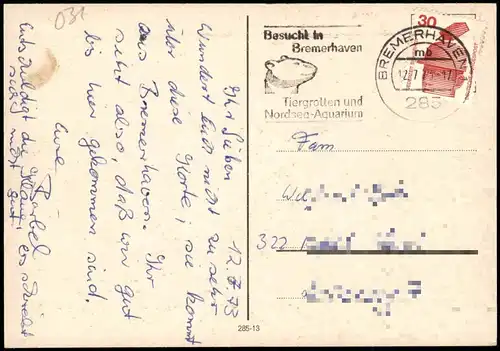 031
Ihr Lieben 12.7.73
Wundert Euch nicht zu sehr
über diese Karte, sie kommt
aus Bremerhaven. Ihr
seht also, daß wir gut
bis hier gekommen sind.
Eure
Bärbel
Entschuldigt die Klaue, es schreibt
sich nicht gut!
Besucht in
Bremerhaven
Tiergrotten und
Nordsee-Aquarium
BREMERHAVEN
mb
285
30
Fam
322
285-13